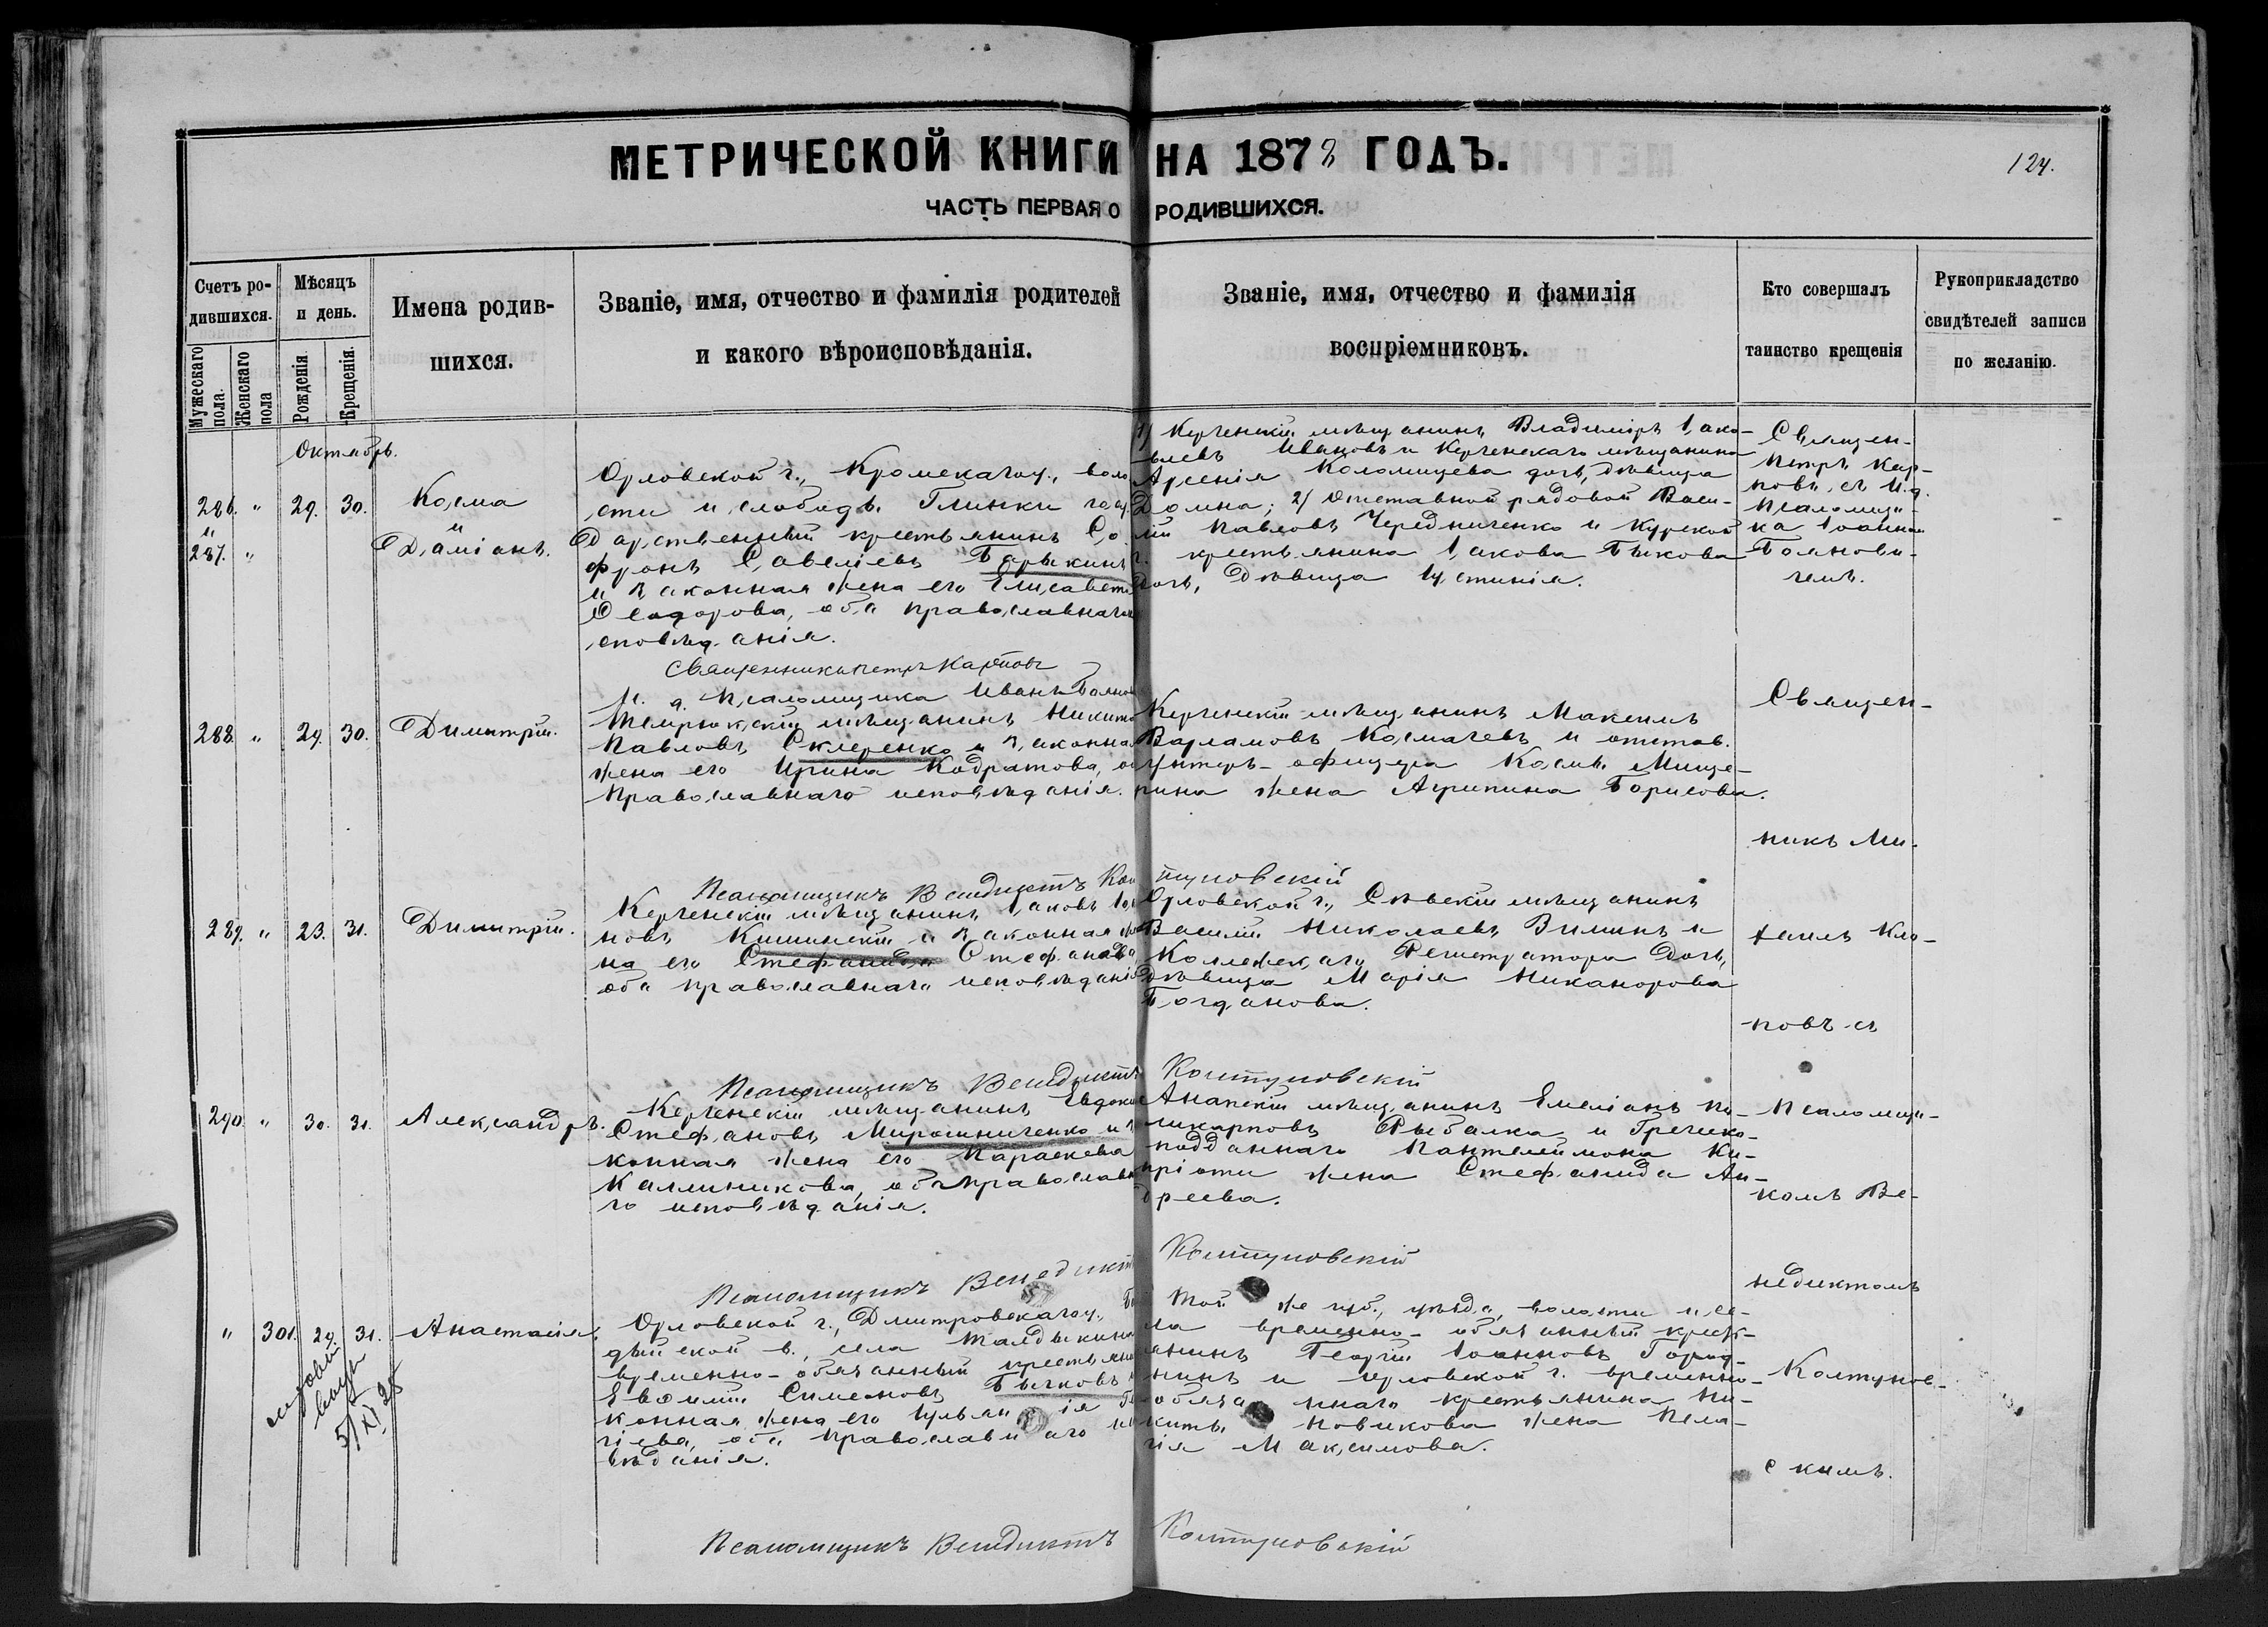 МЕТРИЧЕСКОЙ КНИГИ НА 1878 ГОДЪ.
124.
ЧАСТЬ ПЕРВАЯ О РОДИВШИХСЯ.
Счетъ ро-
дившихся.
Мужескаго пола.
Женскаго пола
Мѣсяцъ
и день.
Рожденія.
Крещенія.
Имена родив-
шихся.
Званіе, имя, отчество и фамилія родителей
и какого вѣроисповѣданія.
Званіе, имя, отчество и фамилія
воспріемниковъ.
Кто совершалъ
таинство крещенія
Рукоприкладство
свидѣтелей записи
по желанію.
Октябрь.
286. " 29. 30. Косма
и
287. " Даміанъ.
Орловской г., Кромскаго у., воло
сти и слободы Глинки госу
дарственный крестьянинъ Со
фронъ Савеліевъ Барыкинъ
и законная жена его Елисавета
Ѳеодорова, оба православнаго
исповѣданія.
1) Керченскій мѣщанинъ Владиміръ Іако-
влевъ Ивановъ и Керченскаго мѣщанина
Арсенія Коломицева дочь, дѣвица
Домна; 2) Отставной рядовой Васи-
лій Павловъ Чередниченко и Курской
г. крестьянина Іакова Быкова
дочь, дѣвица Іустинія.
Священ-
Петръ Кар-
повъ, съ И.д.
Псаломщи-
ка Іоанномъ
Боянови-
чемъ.
Священникъ Петръ Карповъ
И. д. Псаломщика Иванъ
288. " 29. 30. Димитрій.
Темрюкскій мѣщанинъ Никита
Павловъ Скляренко и законна
жена его Ирина Кодратова,
Православнаго исповѣданія.
Керченскій мѣщанинъ Максимъ
Варламовъ Космачевъ и отстав.
унтеръ-офицера Космы Мище-
рина жена Агрипина Борисова.
Священ-
никъ Ми-
хаилъ Кло-
повъ съ
Псаломщи-
комъ Ве-
недиктомъ
Колтунов-
скимъ.
Псаломщикъ Венедиктъ Колтуновскій
289. " 23. 31. Димитрій.
Керченскій мѣщанинъ Іаковъ
новъ Кишинскій и законная же
на его Стефанида Стефанова,
оба православнаго исповѣданія
Орловской г., Сѣвскій мѣщанинъ
Василій Николаевъ Зиминъ и
Коллежскаго Регистратора дочь,
дѣвица Марія Никанорова
Богданова.
Псаломщикъ Венедиктъ Колтуновскій
290. " 30. 31. Александръ.
Керченскій мѣщанинъ Евдоким
Стефановъ Мирошниченко и за
конная жена его Параскева
Каллиникова, оба православна
го исповѣданія.
Анапскій мѣщанинъ Емеліанъ По-
ликарповъ Рыбалка и Греческо-
подданнаго Пантелеймона Ки-
пріоти жена Стефанида Ан-
дреева.
Псаломщикъ Венедиктъ Колтуновскій
" 301. 29. 31. Анастасія.
5/XI 25
Орловской г., Дмитровскаго у.,
села Талдыкина
временно-обязанный крестьяни
Евѳимій Симеоновъ Бычковъ
конная жена его Ульянія
гіева, оба Православнаго испо
вѣданія.
Той же губ., уѣзда, волости и се-
ла временно-обязанный кресть-
янинъ Георгій Іоанновъ Город-
нинъ и Орловской г. временно-
обязаннаго крестьянина Ни-
киты Новикова жена Пела-
гія Максимова.
Псаломщикъ Венедиктъ Колтуновскій